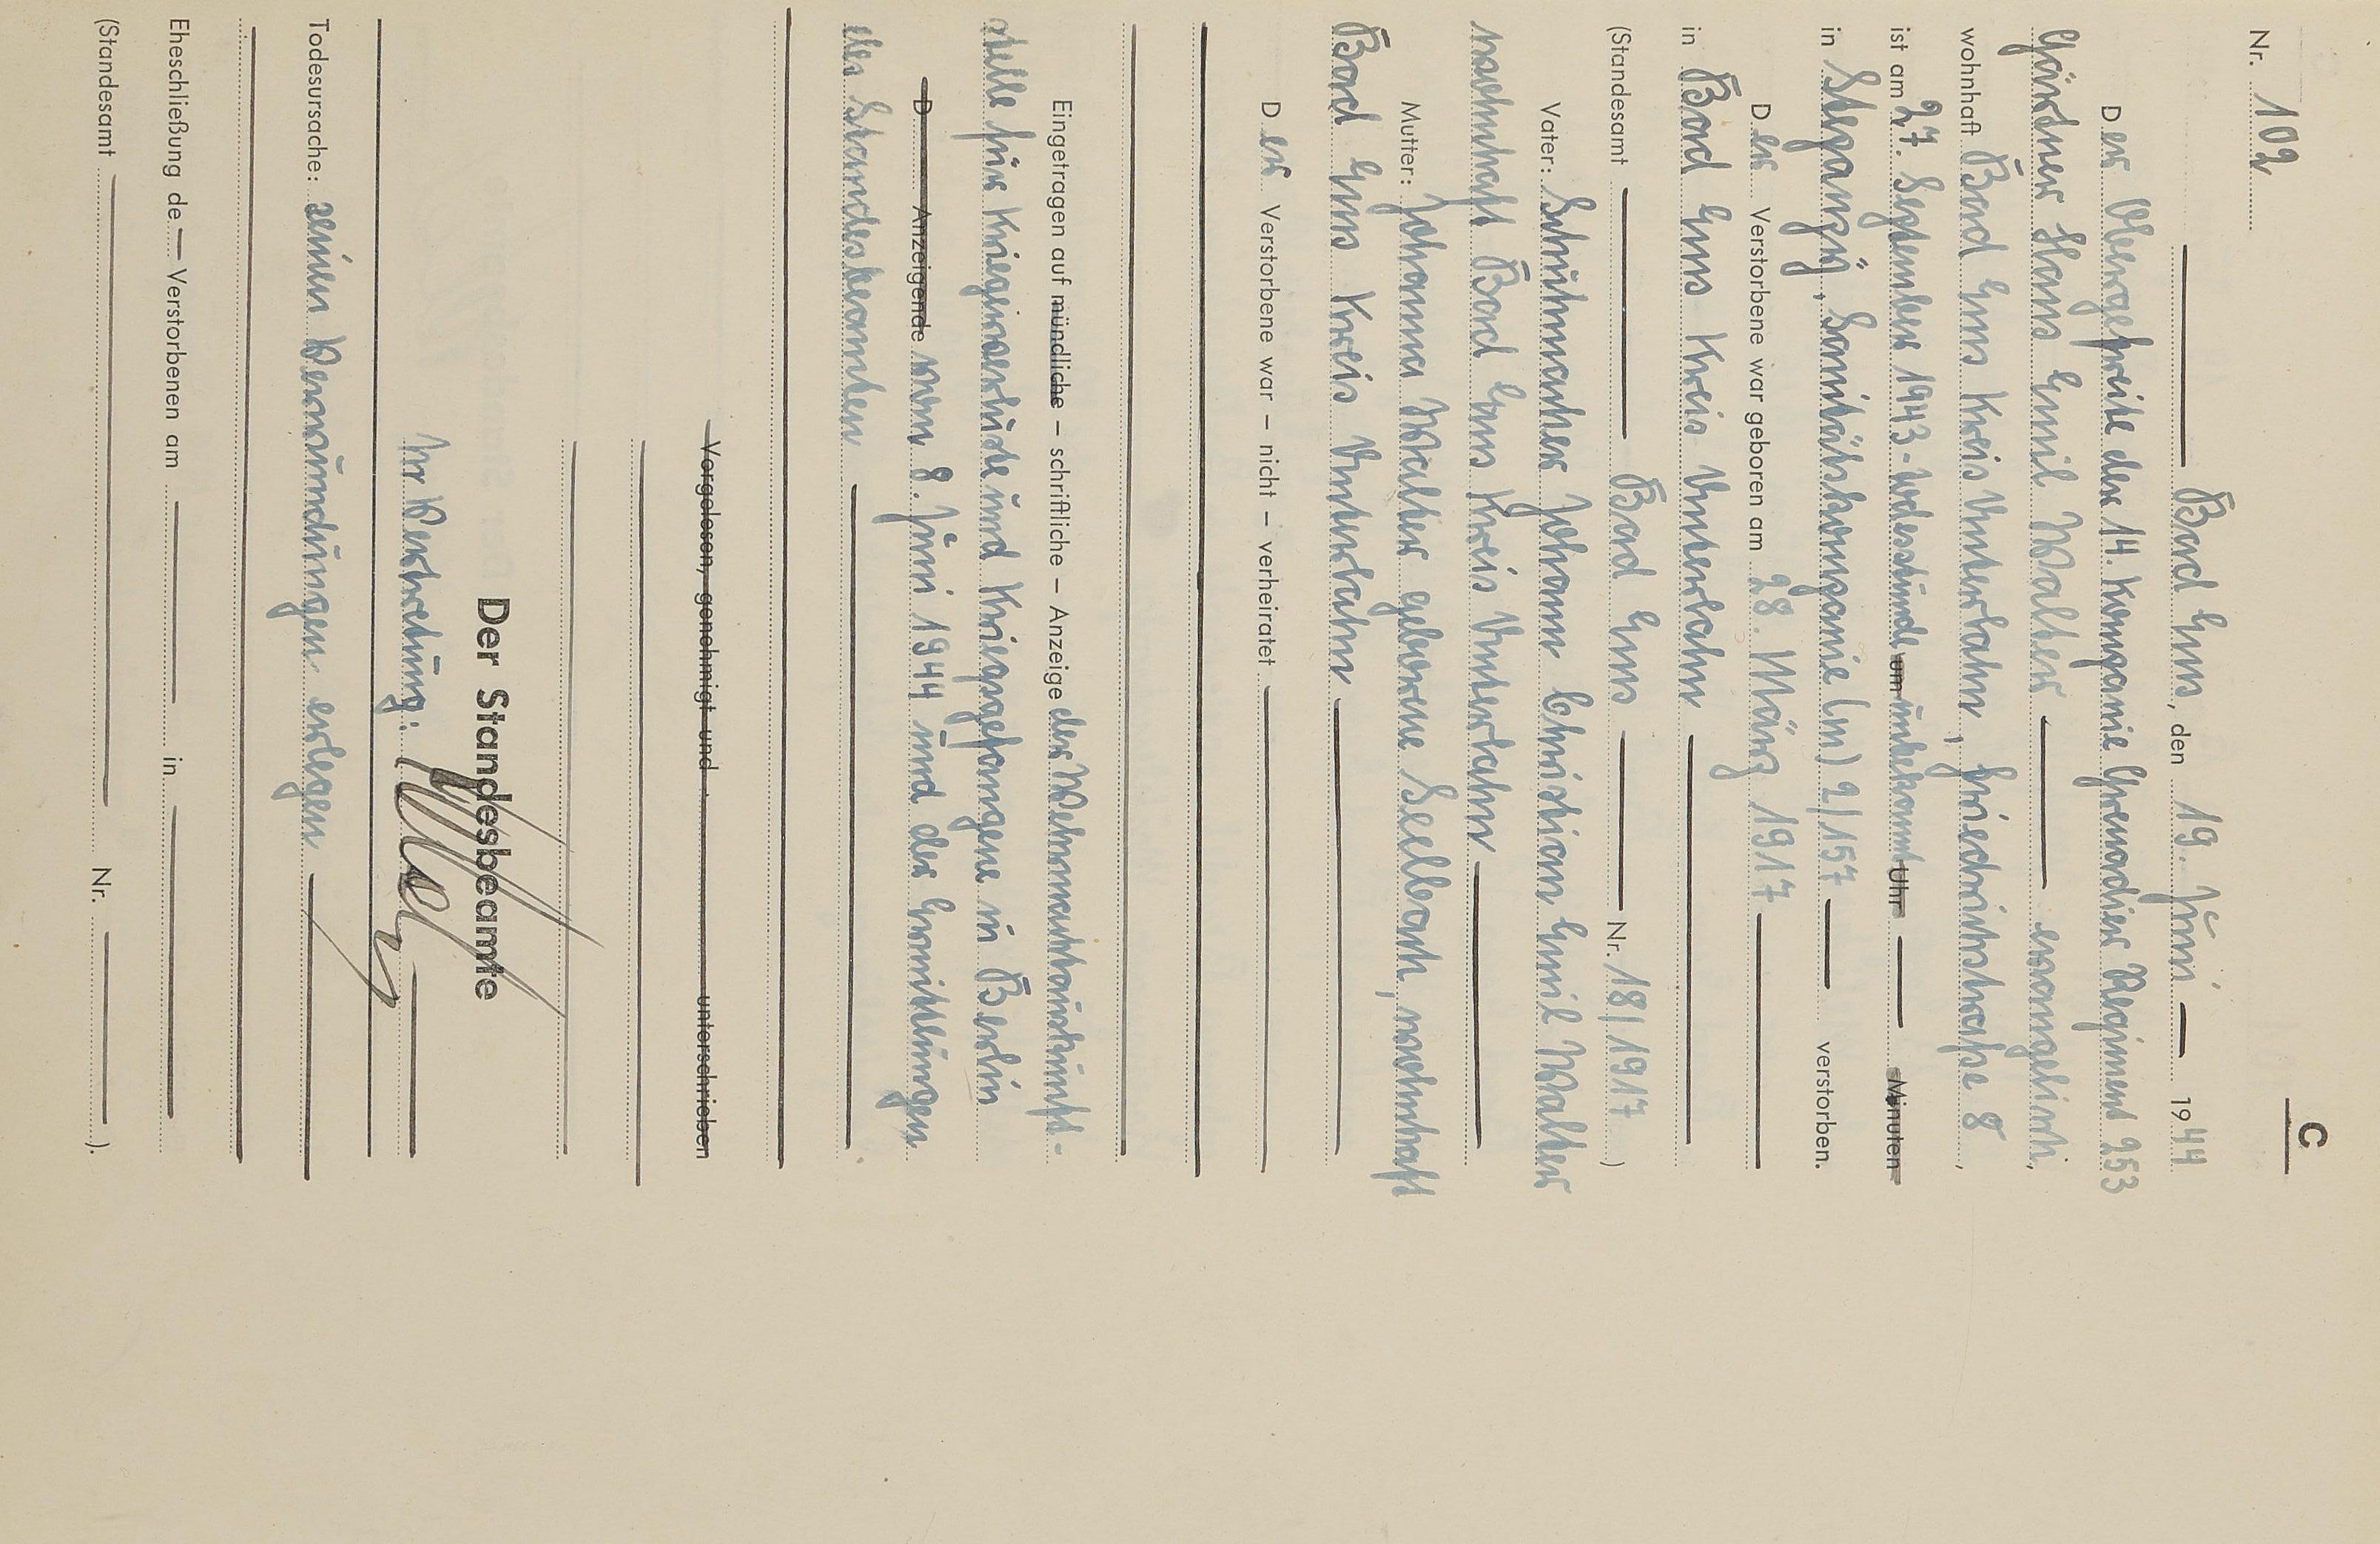 C
Nr. 102
Bad Ems, den 19. Juni 1944
Der Obergefreite der 14. Kompanie Grenadier Regiment 253
Gärtner Hans Emil Walter evangelisch,
wohnhaft Bad Ems Kreis Unterlahn, Friedrichstraße 8,
ist am 27. September 1943 - Todesstunde um unbekannt Uhr Minuten
in Stepanzÿ, Sanitätskompanie (m) 2/157 verstorben.
Der Verstorbene war geboren am 28. März 1917
in Bad Ems Kreis Unterlahn
(Standesamt Bad Ems Nr. 18/1917)
Vater: Schuhmacher Johann Christian Emil Walter
wohnhaft Bad Ems Kreis Unterlahn
Mutter: Johanna Walter geborene Seelbach, wohnhaft
Bad Ems Kreis Unterlahn
Der Verstorbene war – nicht – verheiratet
Eingetragen auf mündliche – schriftliche – Anzeige der Wehrmachtauskunft-
stelle für Kriegerverluste und Kriegsgefangene in Berlin
D Anzeigende vom 8. Juni 1944 und der Ermittlungen
des Standesbeamten
Vorgelesen, genehmigt und unterschrieben
Der Standesbeamte
In Vertretung:
Todesursache: seinen Verwundungen erlegen
Eheschließung de Verstorbenen am in
(Standesamt Nr. ).